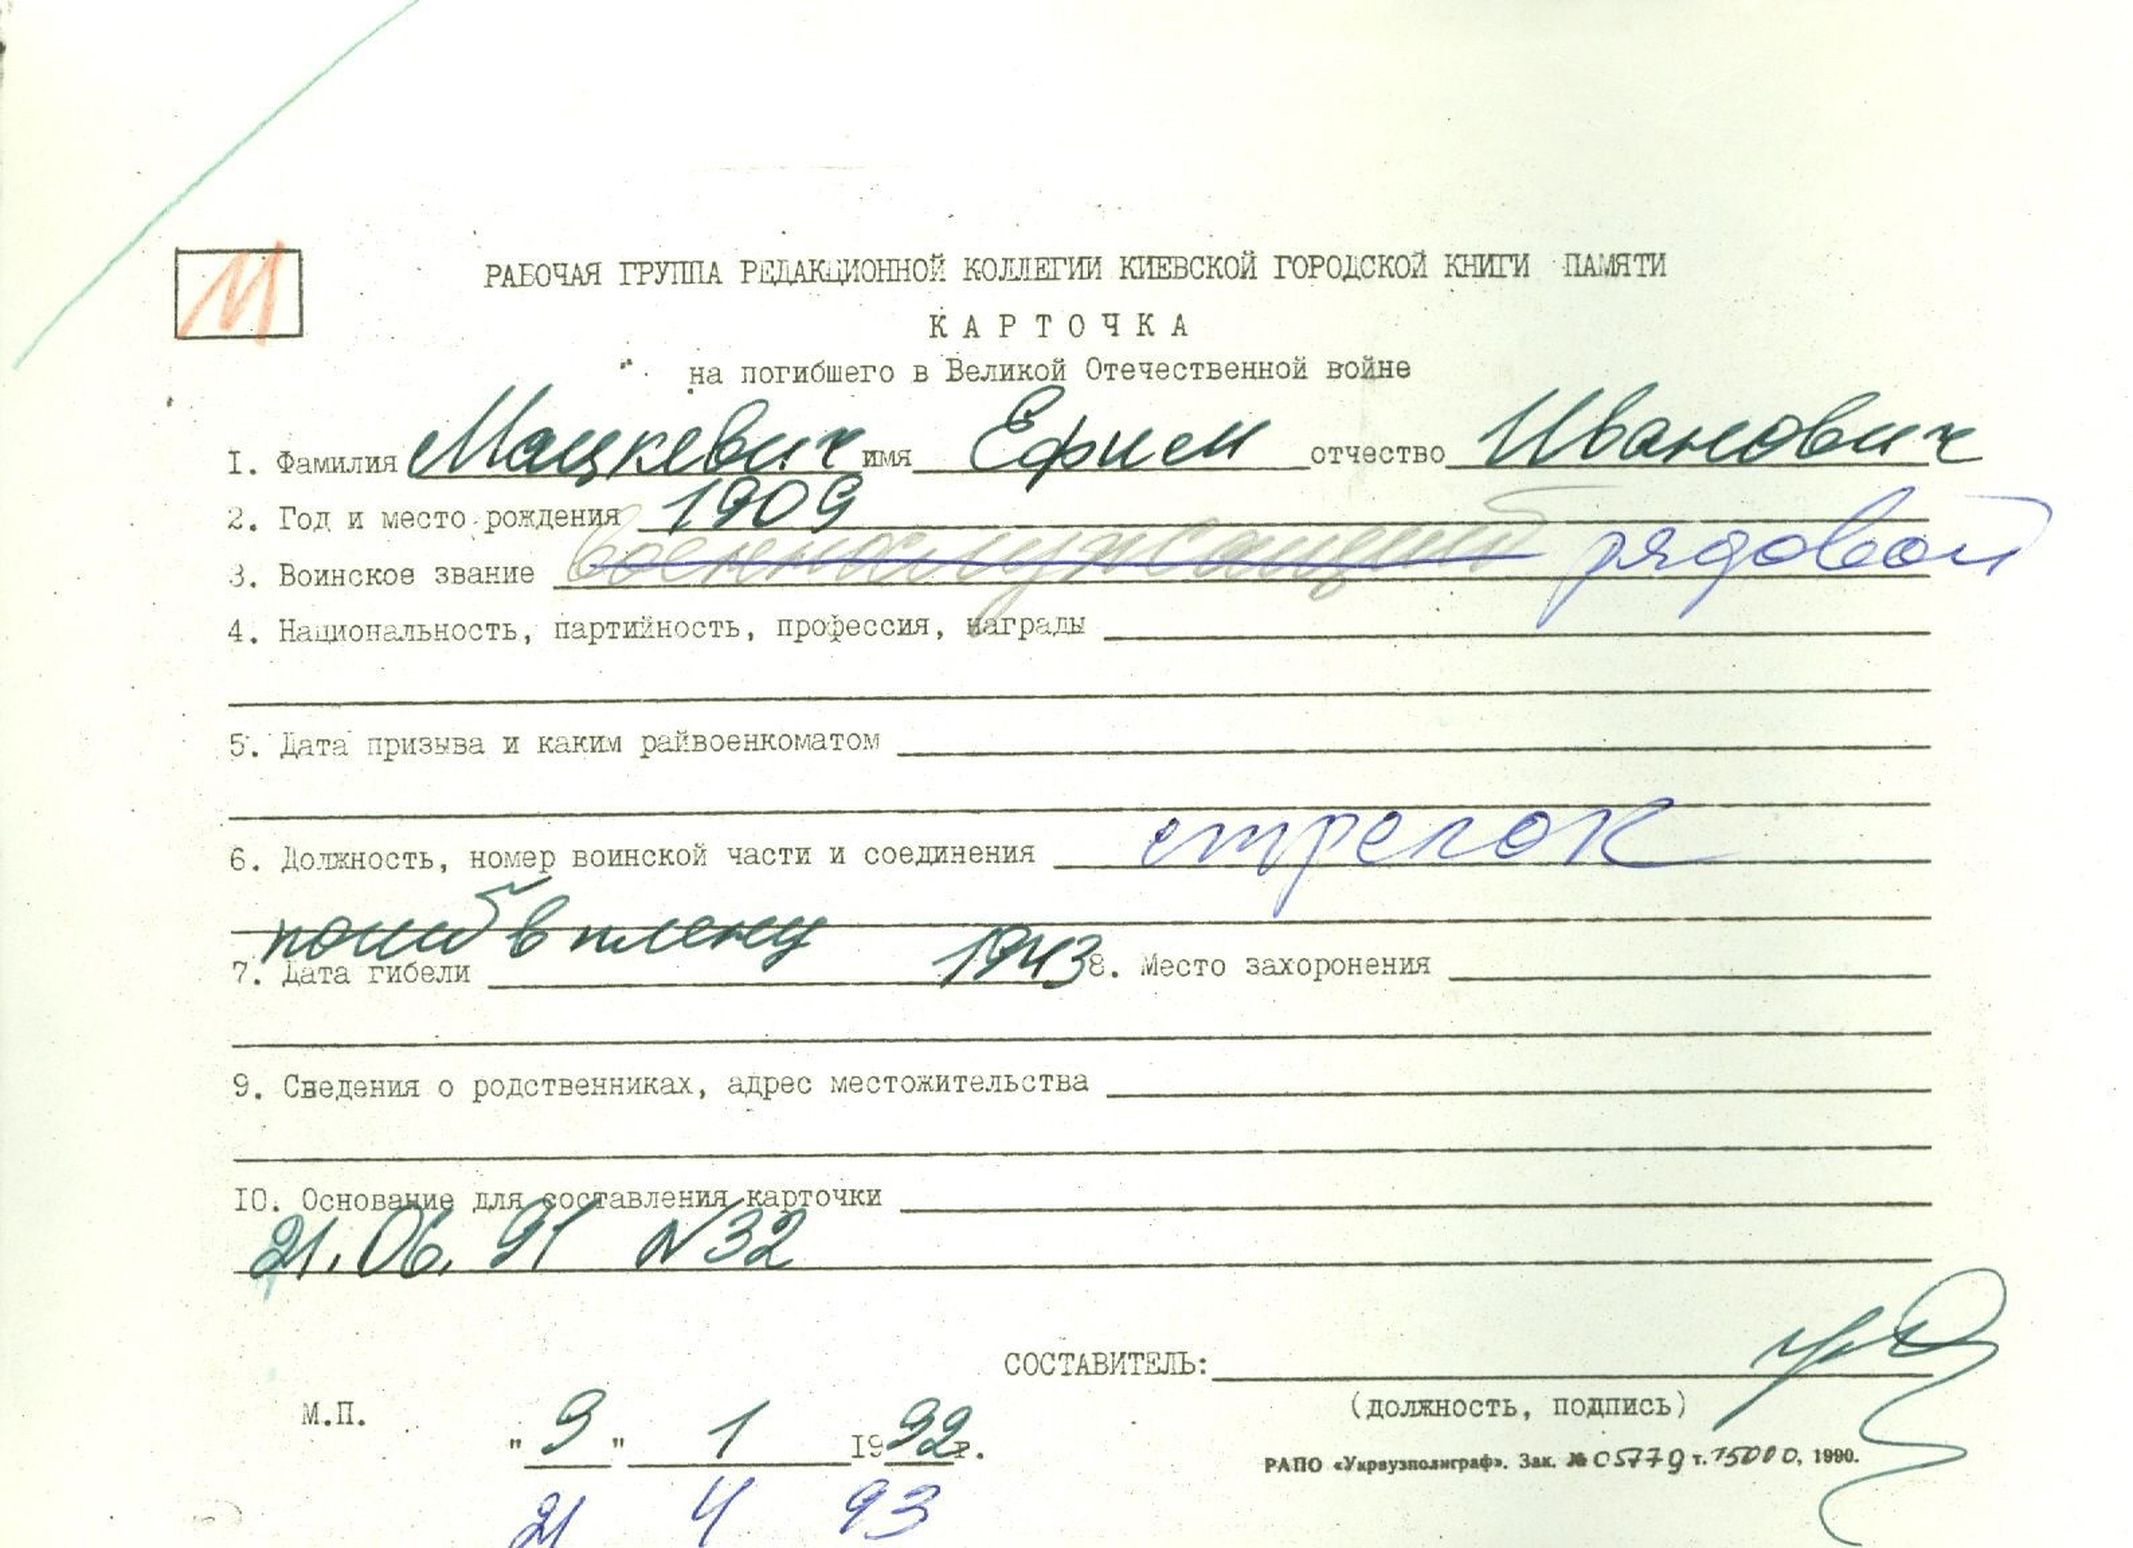 М
РАБОЧАЯ ГРУППА РЕДАКЦИОННОЙ КОЛЛЕГИИ КИЕВСКОЙ ГОРОДСКОЙ КНИГИ ПАМЯТИ
КАРТОЧКА
на погибшего в Великой Отечественной войне
I. Фамилия Мацкевич имя Ефим отчество Иванович
2. Год и место рождения 1909
3. Воинское звание военнослужащий рядовой
4. Национальность, партийность, профессия, награды
5. Дата призыва и каким райвоенкоматом
6. Должность, номер воинской части и соединения стрелок
погиб в плену
7. Дата гибели 1943 8. Место захоронения
9. Сведения о родственниках, адрес местожительства
IO. Основание для составления карточки
21.06.91 N32
СОСТАВИТЕЛЬ:
(должность, подпись)
М.П.
"9" 1 1992г.
РАПО «Укрвузполиграф». Зак. № 05779 т. 15000, 1990.
21 4 93